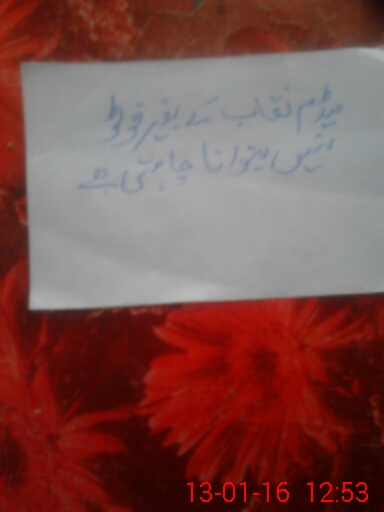 میڈم نقاب کے بغیر فوٹو
نہیں بنوانا چاہتی ہے
13-01-16 12:53